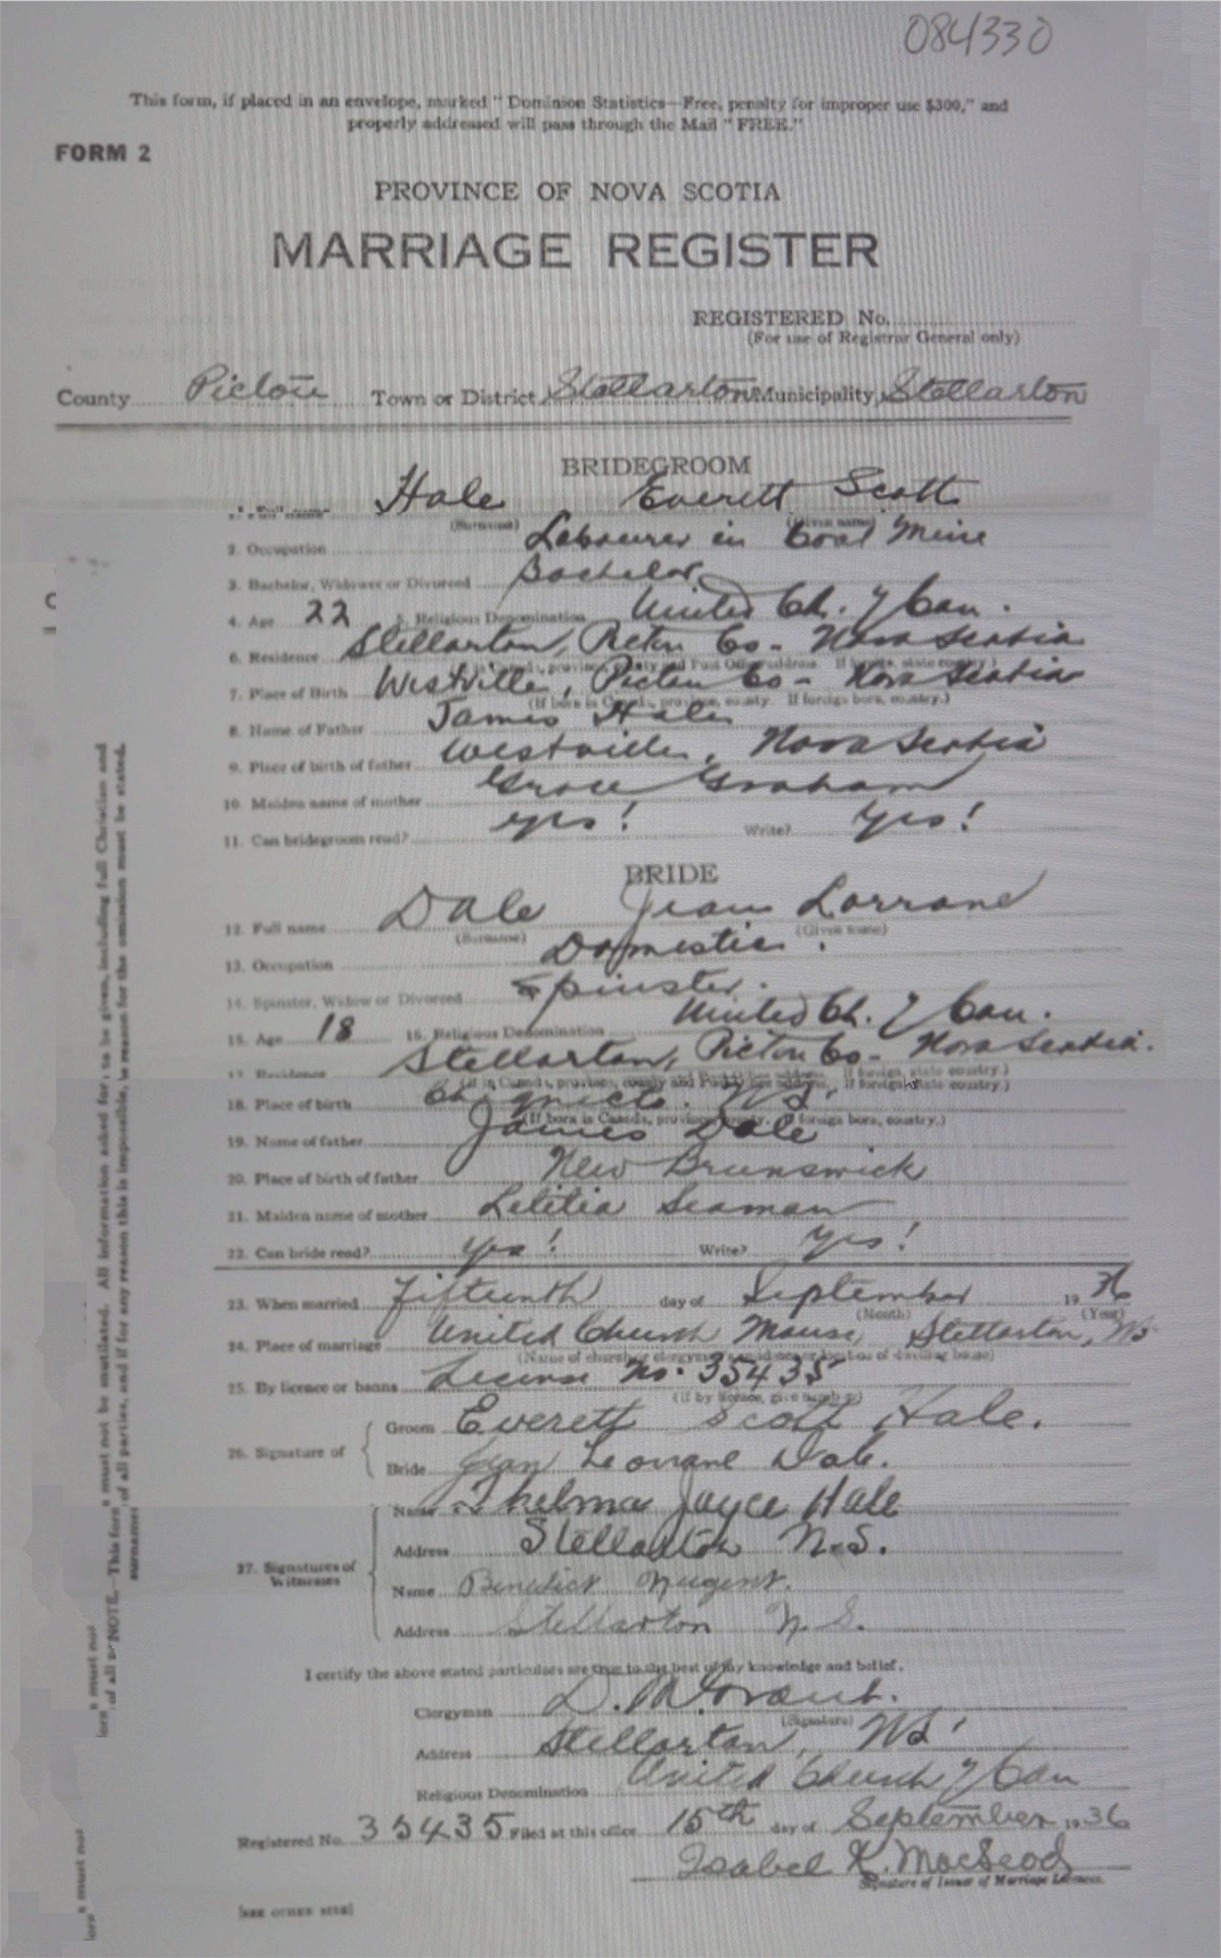 084330
This form, if placed in an envelope, marked "Dominion Statistics—Free, penalty for improper use $300," and
properly addressed will pass through the Mail "FREE."
FORM 2
PROVINCE OF NOVA SCOTIA
MARRIAGE REGISTER
REGISTERED No.
(For use of Registrar General only)
County Pictou Town or District Stellarton Municipality Stellarton
BRIDEGROOM
Hale Everett Scott
(Surname) (Given name)
2. Occupation Labourer in Coal Mine
3. Bachelor, Widower or Divorced Bachelor
4. Age 22 5. Religious Denomination United Ch. of Can.
6. Residence Stellarton, Pictou Co- Nova Scotia
7. Place of Birth Westville, Pictou Co- Nova Scotia
(If born in Canada, province, county. If foreign born, country.)
8. Name of Father James Hale
9. Place of birth of father Westville, Nova Scotia
10. Maiden name of mother Grace Graham
11. Can bridegroom read? yes! Write? yes!
BRIDE
12. Full name Dale Jean Lorrane
(Surname) (Given name)
13. Occupation Domestic.
14. Spinster, Widow or Divorced Spinster.
15. Age 18 16. Religious Denomination United Ch. of Can.
17. Residence Stellarton, Pictou Co- Nova Scotia.
(If in Canada, province, county and Post Office address. If foreign, state country.)
18. Place of birth N.S.
(If born in Canada, province, county. If foreign born, country.)
19. Name of father James Dale
20. Place of birth of father New Brunswick
21. Maiden name of mother Letitia Seaman
22. Can bride read? yes! Write? yes!
23. When married fifteenth day of September 1936
(Month) (Year)
24. Place of marriage United Church Manse, Stellarton, NS
25. By licence or banns License No. 35435
(If by licence, give number)
26. Signature of
Groom Everett Scott Hale.
Bride Jean Leorrane Dale.
27. Signatures of Witnesses
Name Thelma Jayce Hale
Address Stellarton N.S.
Name Benedict Nugent.
Address Stellarton N.S.
I certify the above stated particulars are true to the best of my knowledge and belief.
Clergyman D. M.
(Signature)
Address Stellarton, NS
Religious Denomination United Church of Can
Registered No. 35435 Filed at this office 15th day of September 1936
Isabel K. MacLeod
Signature of Issuer of Marriage Licences.
[SEE OTHER SIDE]
NOTE.—This form must not be mutilated. All information asked for to be given, including full Christian and
surnames of all parties, and if for any reason this is impossible, a reason for the omission must be stated.